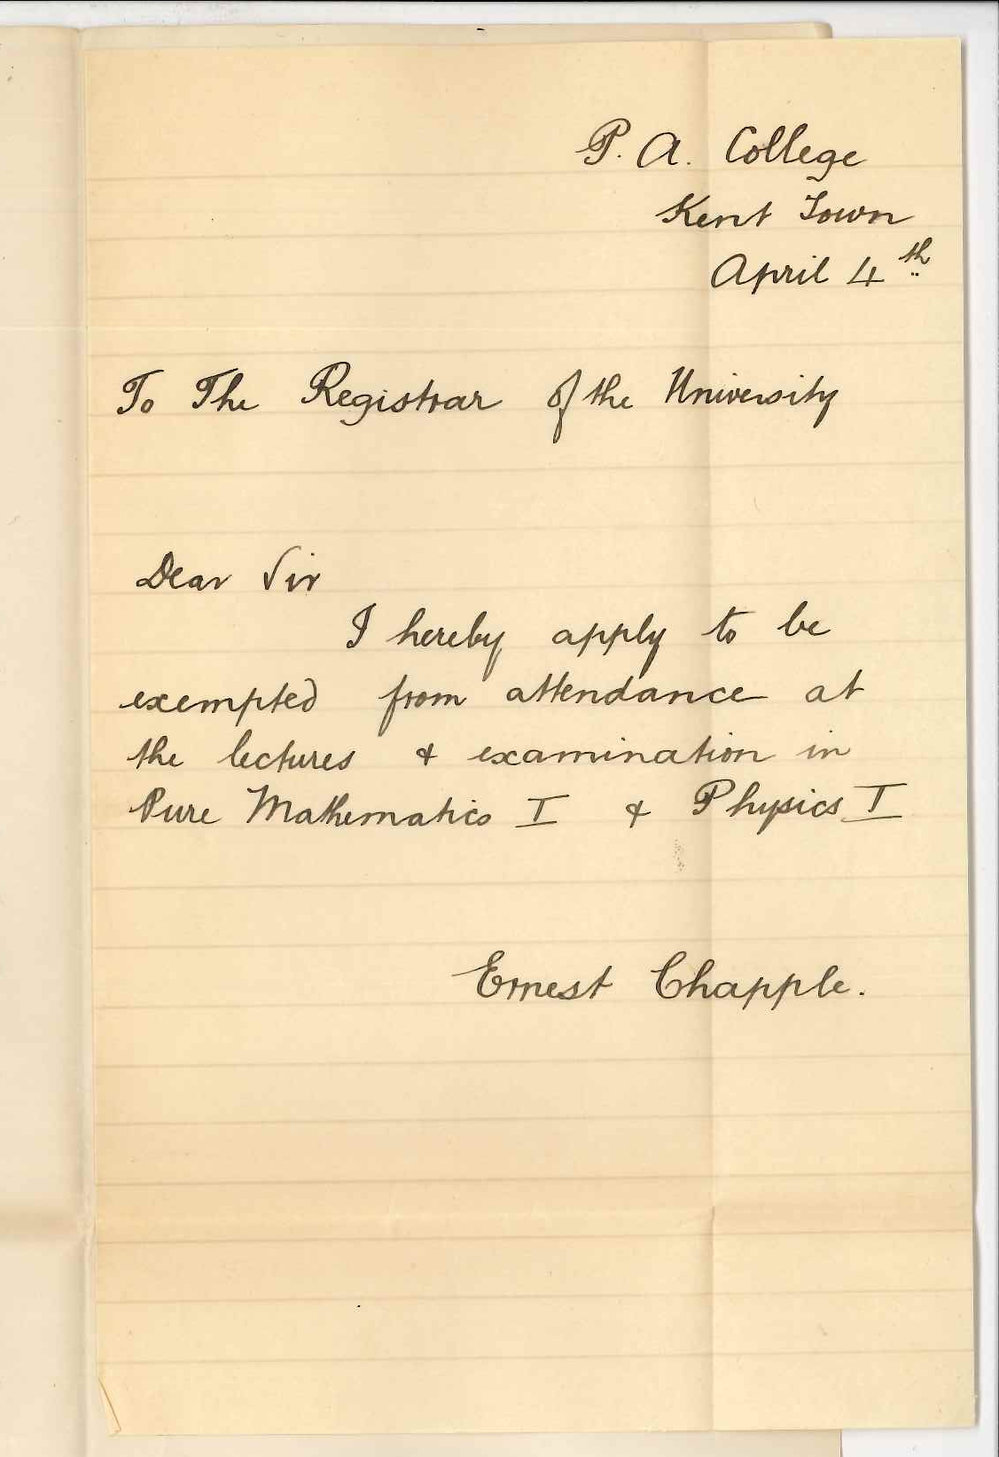 P. A. College
Kent Town
April 4th
To The Registrar of the University
Dear Sir
I hereby apply to be
exempted from attendance at
the lectures & examination in
Pure Mathematics I & Physics I
Ernest Chapple.